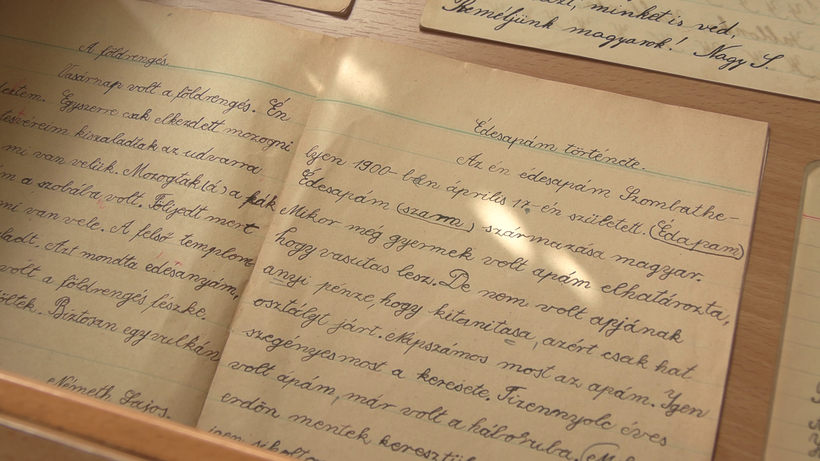 zt, minket is véd,
Reméljünk magyarok! Nagy S.
A földrengés.
Vasárnap volt a földrengés. Én
estem. Egyszerre csak elkezdett mozogni
testvéreim kiszaladtak az udvarra
mi van velük. Mozogtak(á) a fák
m a szobába, volt. Folijedt ment
mi van vele. A felső templom
ladt. Azt mondta édesanyám,
volt a földrengés fészke.
öltek. Biztosan egy vulkán
Németh Lajos.
Édesapám története.
Az én édesapám Szombathe-
lyen 1900-ban április 17-én született. (Édapám)
Édesapám (szárm) származása magyar.
Mikor még gyermek volt apám elhatározta,
hogy vasutas lesz. De nem volt apjának
anyi pénze, hogy kitanitasa, azért csak hat
osztályt járt. Napszámos most az apám. Igen
szegényes most a keresete. Tizennyolc éves
volt apám, már volt a háboruba.
erdőn mentek keresztül